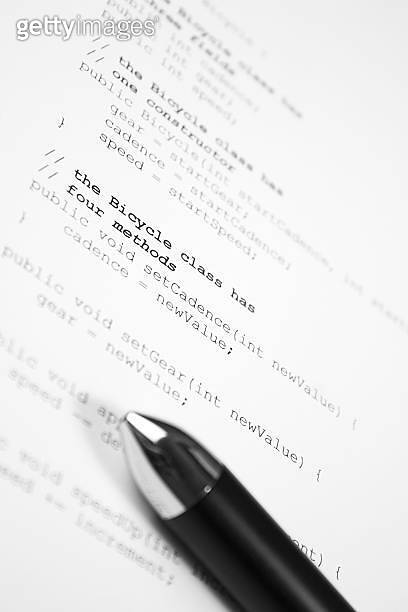 gettyimages
the Bicycle class has
three fields
public int cadence;
public int gear;
public int speed;
// the Bicycle class has
// one constructor
public Bicycle(int startCadence, int
gear = startGear;
cadence = startCadence;
speed = startSpeed;
}
//
// the Bicycle class has
// four methods
public void setCadence(int newValue) {
cadence = newValue;
}
public void setGear(int newValue) {
gear = newValue;
void
speed -= de
void speedUp(int {
+= increment;